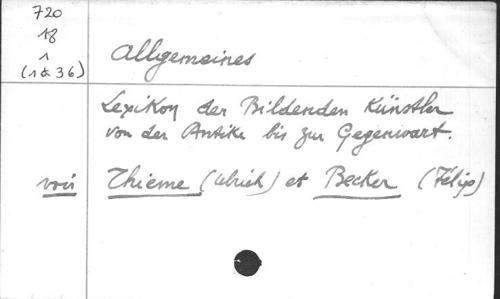 720
18
1
(1à36)
Allgemeines
Lexikon der Bildenden Künstler
von der Antike bis zur Gegenwart.
voir Thieme (Ulrich) et Becker (Félix)